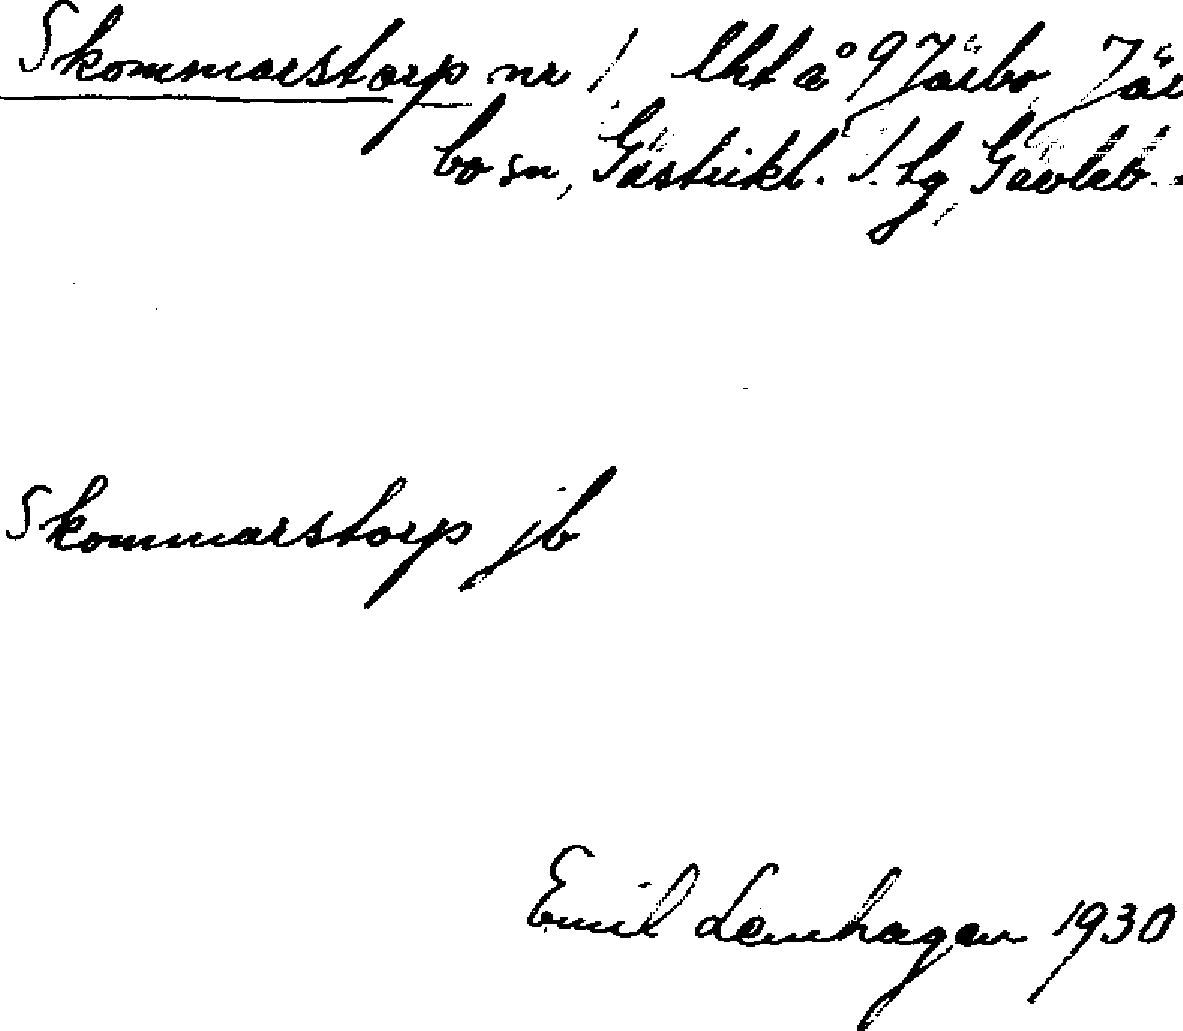 Skommarstorp nr 1 lht å 9 Järbo, Jär
bo sn, Gästrikl. ö. tg, Gävleb.
Skommarstorp jb
Emil Lenhagen 1930